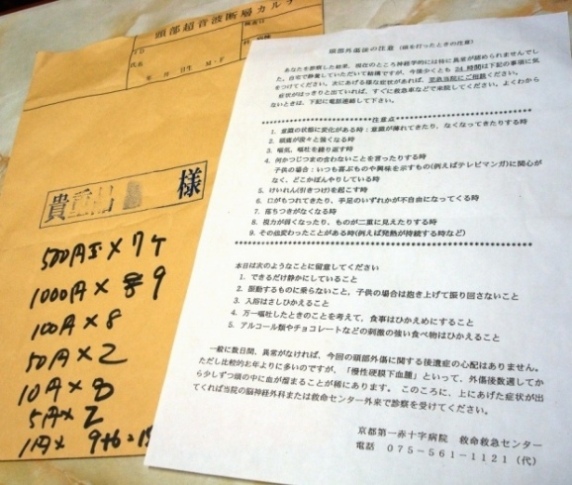 頭部超音波断層カルテ
氏名
年 月 日生 M・F
貴重品
様
500円玉×7ケ
1000円×9
100円×8
50円×2
10円×8
5円×2
1円×
頭部外傷後の注意 (頭を打ったときの注意)
あなたを診察した結果、現在のところ神経学的には特に異常が認められませんでし
た。自宅で静養していただいて結構ですが、今後少くとも 24 時間は下記の事項に気
をつけてください。次にあげる様な症状があれば、至急当院にご相談ください。
症状がはっきりと出ていれば、すぐに救急車などで来院してください。よくわから
ないときは、下記に電話連絡して下さい。
注意点
1. 意識の状態に変化がある時：意識が薄れてきたり、なくなってきたりする時
2. 頭痛が段々と強くなる時
3. 嘔気、嘔吐を繰り返す時
4. 何かつじつまの合わないことを言ったりする時
子供の場合：いつも喜ぶものや興味を示すもの(例えばテレビマンガ)に関心が
なく、どこかぼんやりしている時
5. けいれん(引きつけ)を起こす時
6. 口がもつれてきたり、手足のいずれかが不自由になってくる時
7. 落ちつきがなくなる時
8. 視力が弱くなったり、ものが二重に見えたりする時
9. その他変わったことがある時(例えば発熱が持続する時など)
本日は次のようなことに留意してください
1. できるだけ静かにしていること
2. 振動するものに乗らないこと、子供の場合は抱き上げて振り回さないこと
3. 入浴はさしひかえること
4. 万一嘔吐したときのことを考えて、食事はひかえめにすること
5. アルコール類やチョコレートなどの刺激の強い食べ物はひかえること
一般に数日間、異常がなければ、今回の頭部外傷に関する後遺症の心配はありません。
ただし比較的お年よりに多いのですが、「慢性硬膜下血腫」といって、外傷後数週してか
ら少しずつ頭の中に血が溜まることが稀にあります。このころに、上にあげた症状が出
てくれば当院の脳神経外科または救命センター外来で診察を受けてください。
京都第一赤十字病院 救命救急センター
電話 075-561-1121(代)